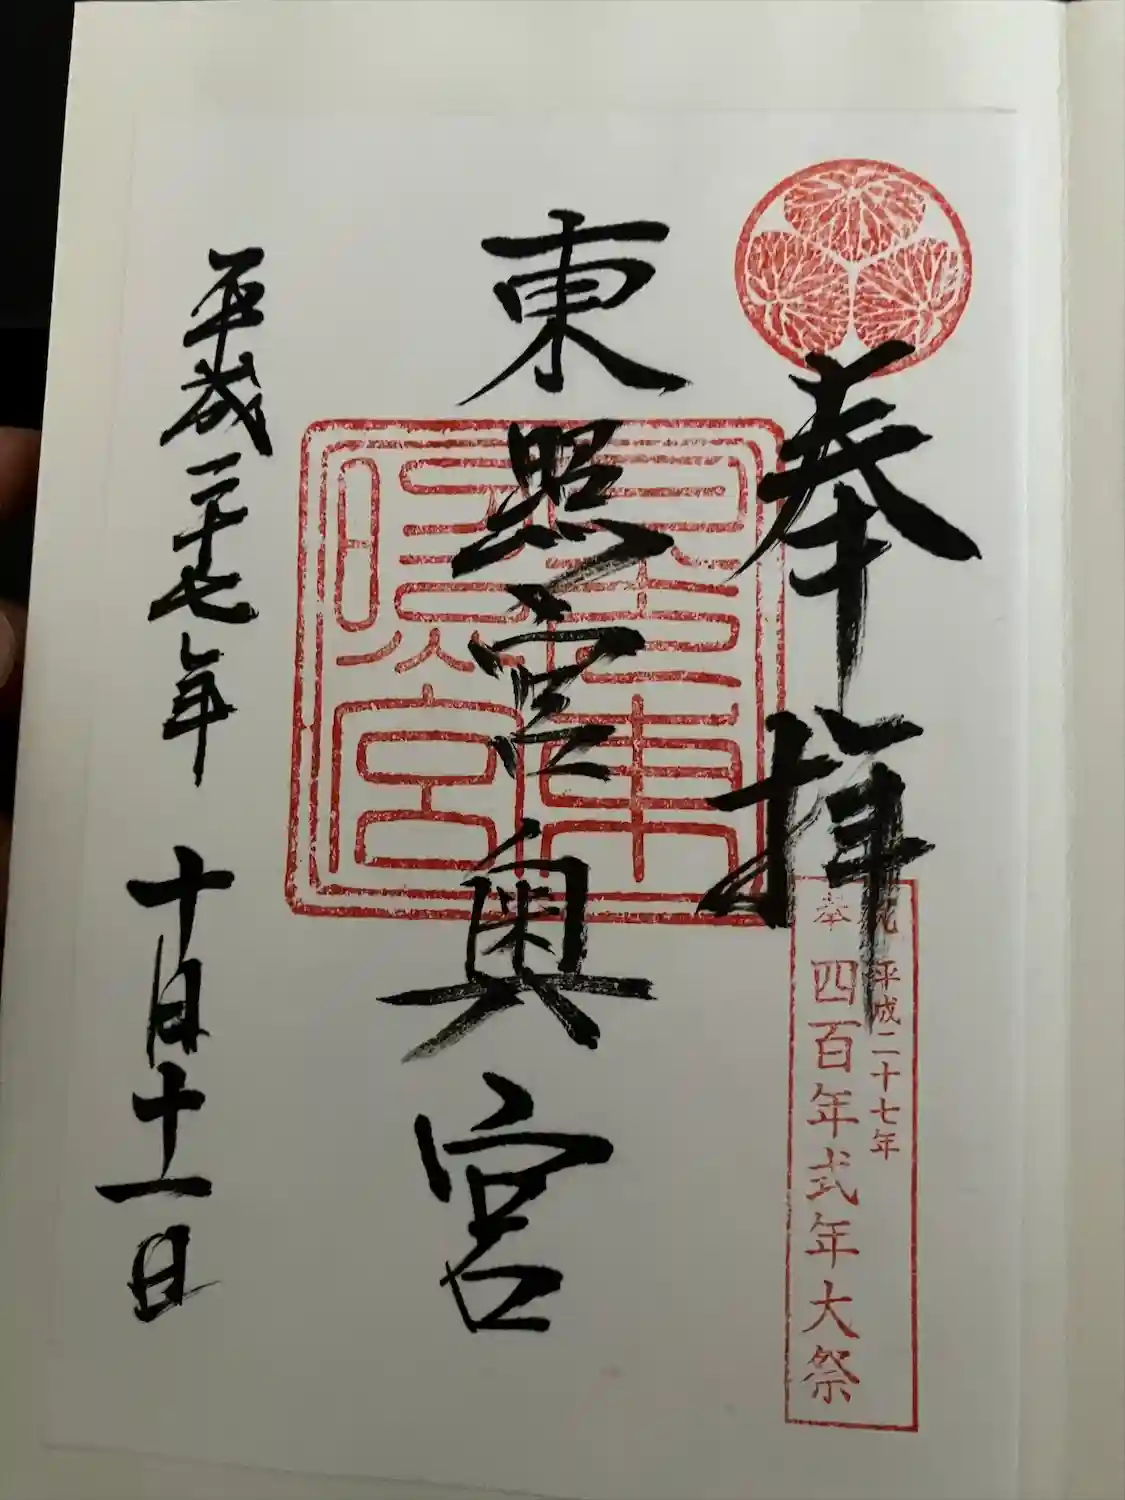 奉拝
平成二十七年
四百年式年大祭
東照宮奥宮
東照宮
平成二十七年 十月十一日